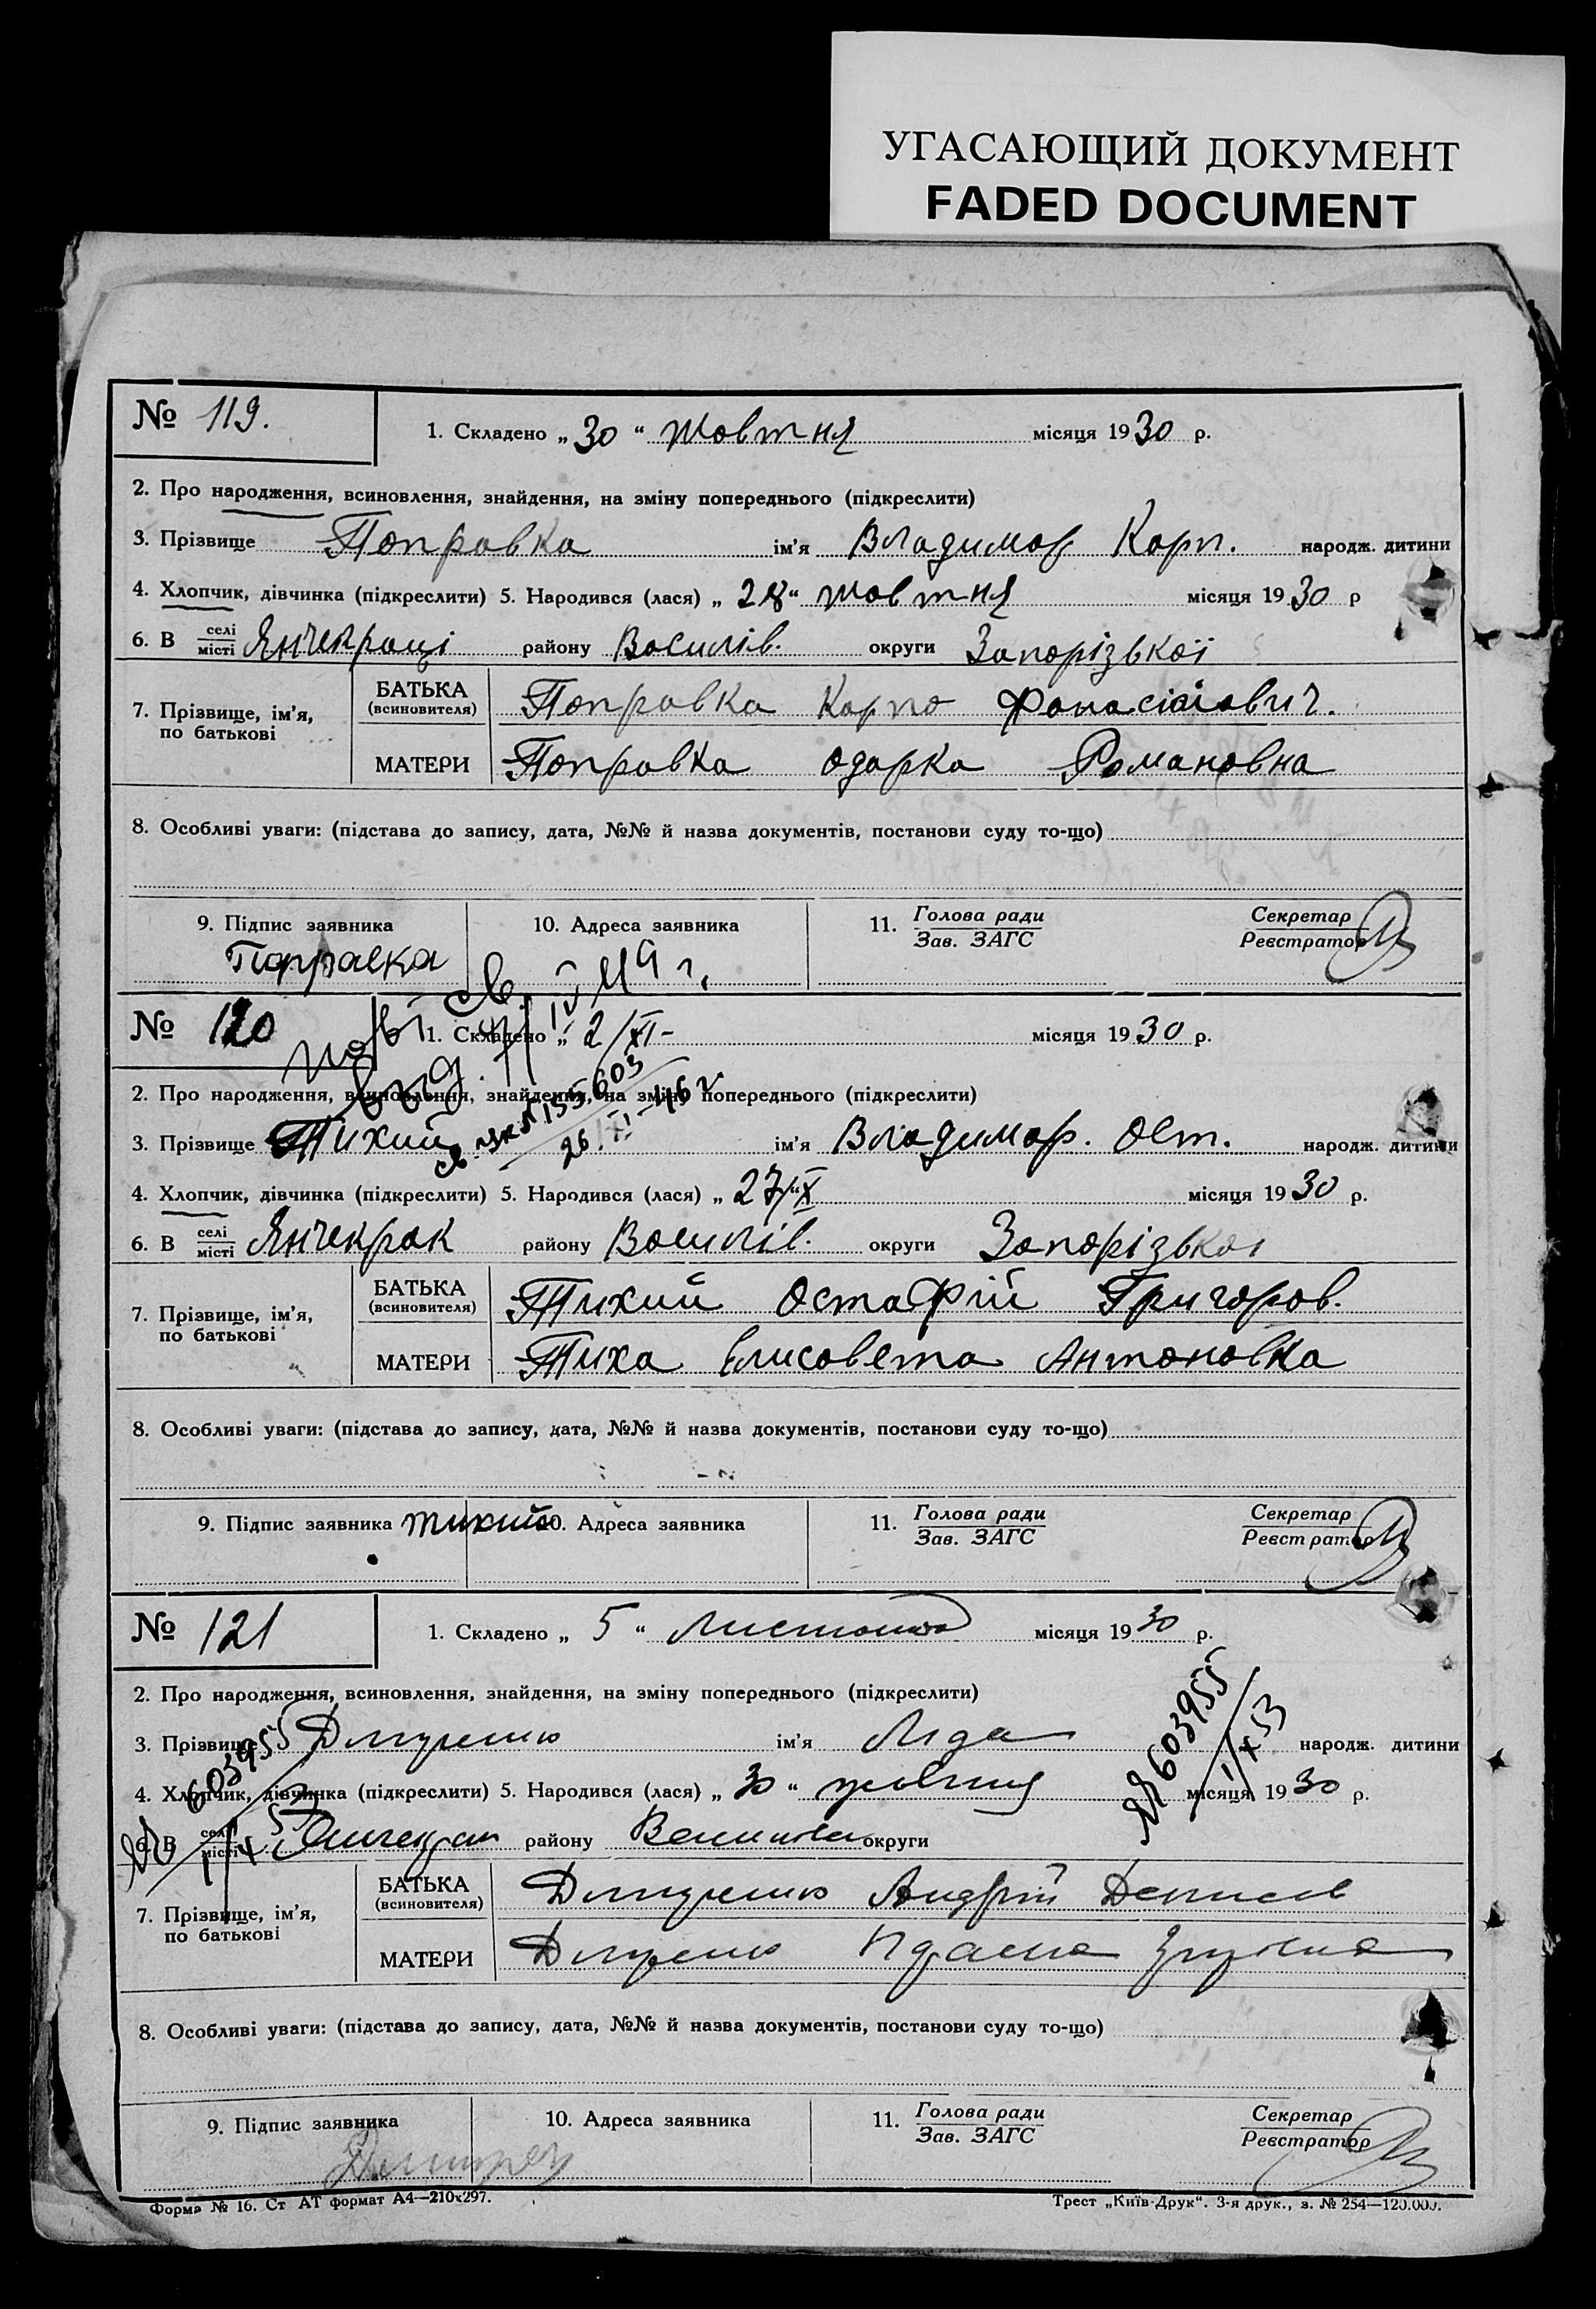 УГАСАЮЩИЙ ДОКУМЕНТ
FADED DOCUMENT
№ 119.
1. Складено „ 30 “ Жовтня місяця 1930 р.
2. Про народження, всиновлення, знайдення, на зміну попереднього (підкреслити)
3. Прізвище Поправка ім'я Владимор Карп. народж. дитини
4. Хлопчик, дівчинка (підкреслити) 5. Народився (лася) „ 28 “ жовтня місяця 1930 р
6. В селі місті Янчекраці району Василів. округи Запорізької
7. Прізвище, ім'я, по батькові
БАТЬКА (всиновителя) Поправка Карпо
МАТЕРИ Поправка Одарка Романовна
8. Особливі уваги: (підстава до запису, дата, №№ й назва документів, постанови суду то-що)
9. Підпис заявника 10. Адреса заявника 11. Голова ради Зав. ЗАГС Секретар Реєстратор
Поправка
№ 120
1. Складено „ 2/XI- місяця 1930 р.
2. Про народження, всиновлення, знайдення, на зміну попереднього (підкреслити)
155603
26/XI-46 г
3. Прізвище Тихий ім'я Владимор. Ост. народж. дитини
4. Хлопчик, дівчинка (підкреслити) 5. Народився (лася) „ 27/“X місяця 1930 р.
6. В селі місті Янчекрак району Василів. округи Запорізької
7. Прізвище, ім'я, по батькові
БАТЬКА (всиновителя) Тихий Остафій Григоров.
МАТЕРИ Тиха Елисовета Антоновка
8. Особливі уваги: (підстава до запису, дата, №№ й назва документів, постанови суду то-що)
9. Підпис заявника Тихий 10. Адреса заявника 11. Голова ради Зав. ЗАГС Секретар Реєстратор
№ 121
1. Складено „ 5 “ Листопада місяця 1930 р.
2. Про народження, всиновлення, знайдення, на зміну попереднього (підкреслити)
603955
1/X 53
3. Прізвище ім'я Лида народж. дитини
4. Хлопчик, дівчинка (підкреслити) 5. Народився (лася) „ 30 “ жовтня місяця 1930 р.
603955
1/X 53
6. В селі місті Янчекрак району Василівськ округи
7. Прізвище, ім'я, по батькові
БАТЬКА (всиновителя) Андрій Денисов
МАТЕРИ
8. Особливі уваги: (підстава до запису, дата, №№ й назва документів, постанови суду то-що)
9. Підпис заявника 10. Адреса заявника 11. Голова ради Зав. ЗАГС Секретар Реєстратор
Форма № 16. Ст АТ формат А4—210х297.
Трест „Київ-Друк“. 3-я друк., з. № 254—120.000.